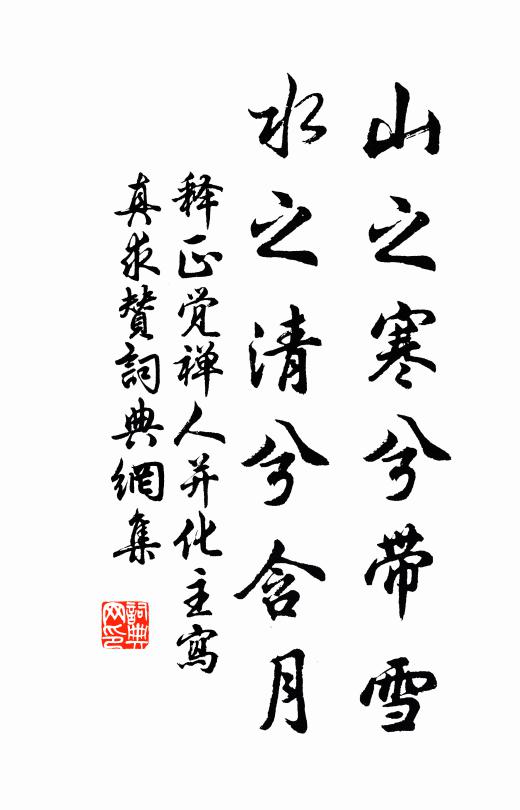 山之寒兮带雪
水之清兮含月
释正觉禅人并化主寫
真求贊詞典網集
詞典网印